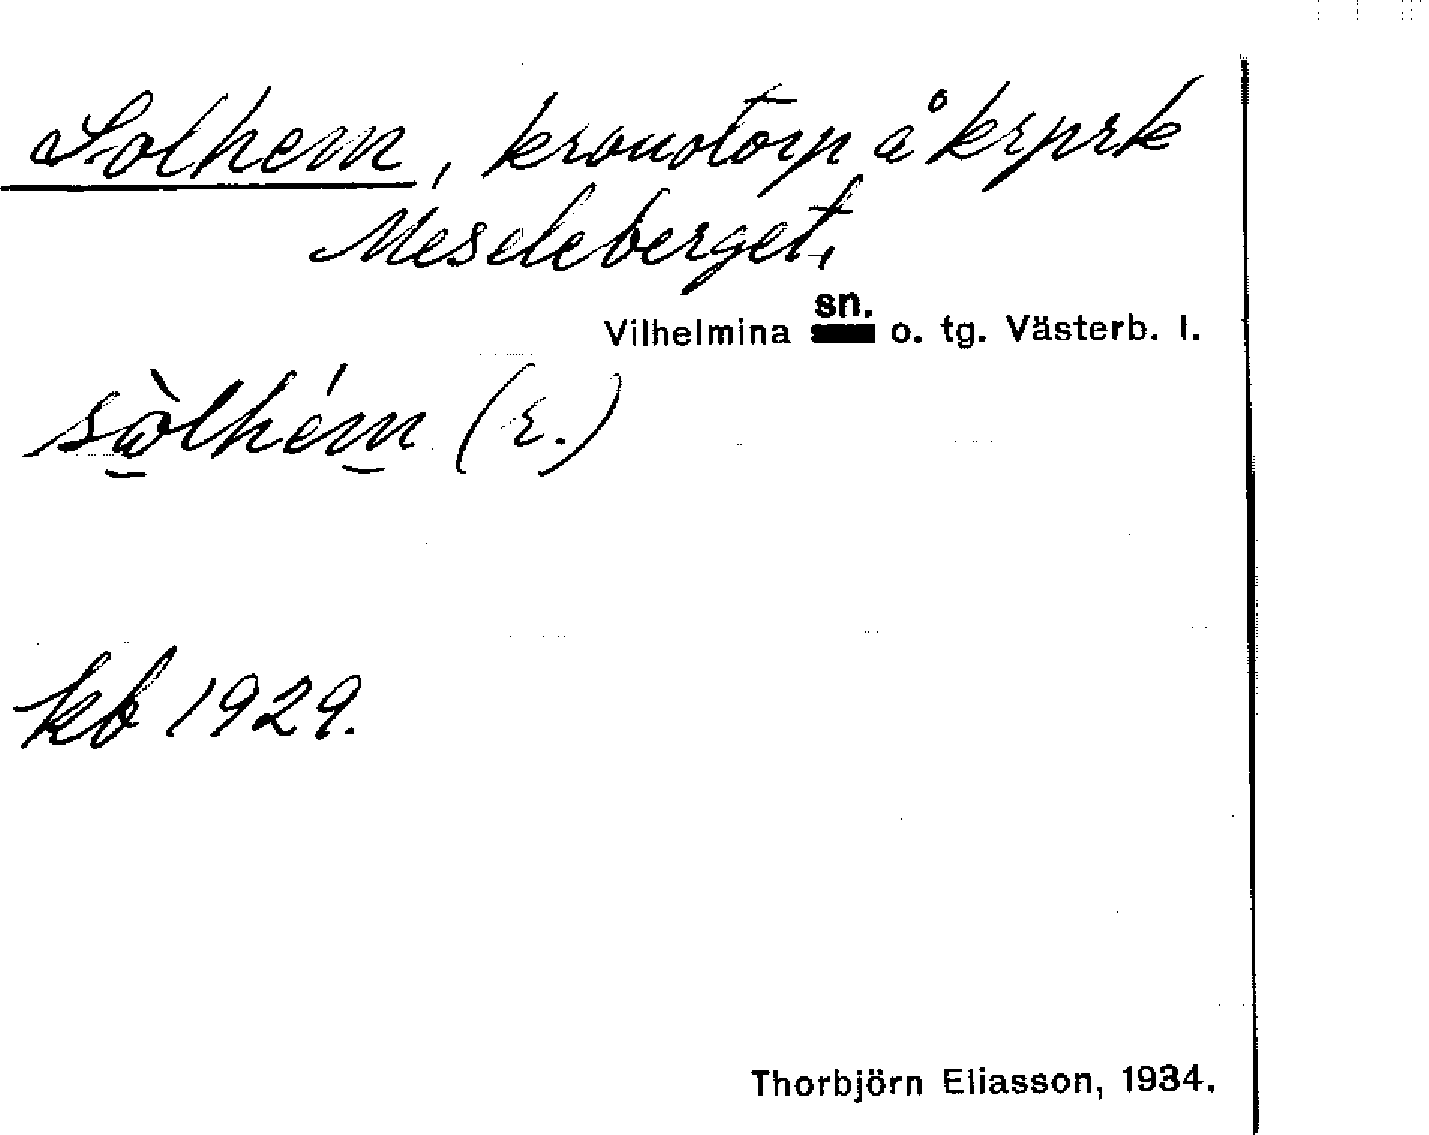 Solhem, kronotorp å krprk
Meseleberget,
sn.
Vilhelmina o. tg. Västerb. l.
sòlhém (r.)
kb 1929.
Thorbjörn Eliasson, 1934.